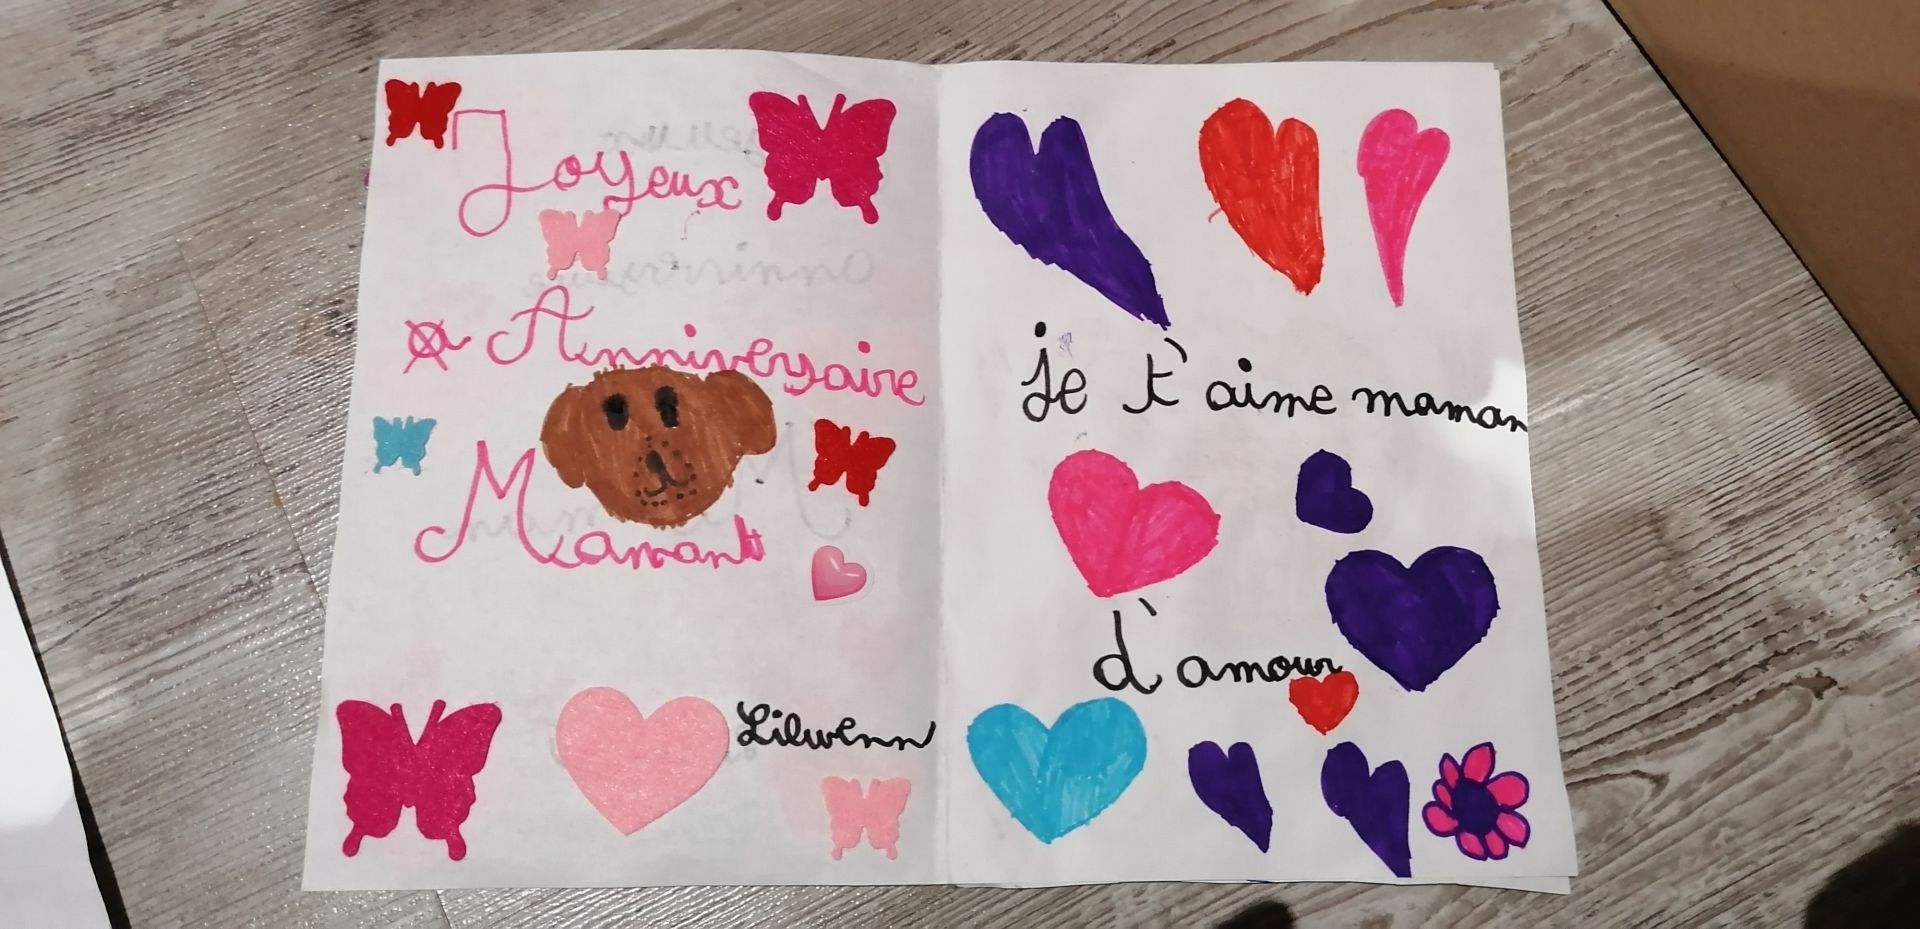 Joyeux
a Anniversaire
Maman
Lilwenn
je t'aime maman
d'amour